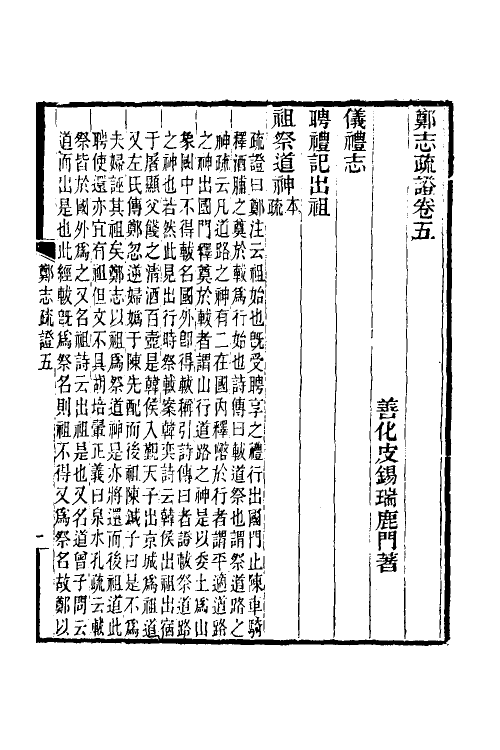 鄭志疏證卷五
善化皮錫瑞鹿門著
儀禮志
聘禮記出祖
祖祭道神本疏
疏證曰鄭注云祖始也旣受聘享之禮行出國門止陳車騎
釋酒脯之奠於軷爲行始也詩傳曰軷道祭也謂祭道路之
神疏云凡道路之神有二在國內釋幣於行者謂平適道路
之神出國門釋奠於軷者謂山行道路之神是以委土爲山
象國中不得軷名國外卽得軷稱引詩傳曰者證軷祭道路
之神也若然此見出行時祭軷案韓奕詩云韓侯出祖出宿
于屠顯父餞之清酒百壺是韓侯入覲天子出京城爲祖道
又左氏傳鄭忽逆婦嬀于陳先配而後祖陳鍼子曰是不爲
夫婦誣其祖矣鄭志以祖爲祭道神是亦將還而後祖道此
聘使還亦宜有祖但文不具胡培翬正義曰泉水孔疏云軷
祭皆於國外爲之又名祖詩云出祖是也又名道曾子問云
道而出是也此經軷旣爲祭名則祖不得又爲祭名故鄭以
鄭志疏證五
一